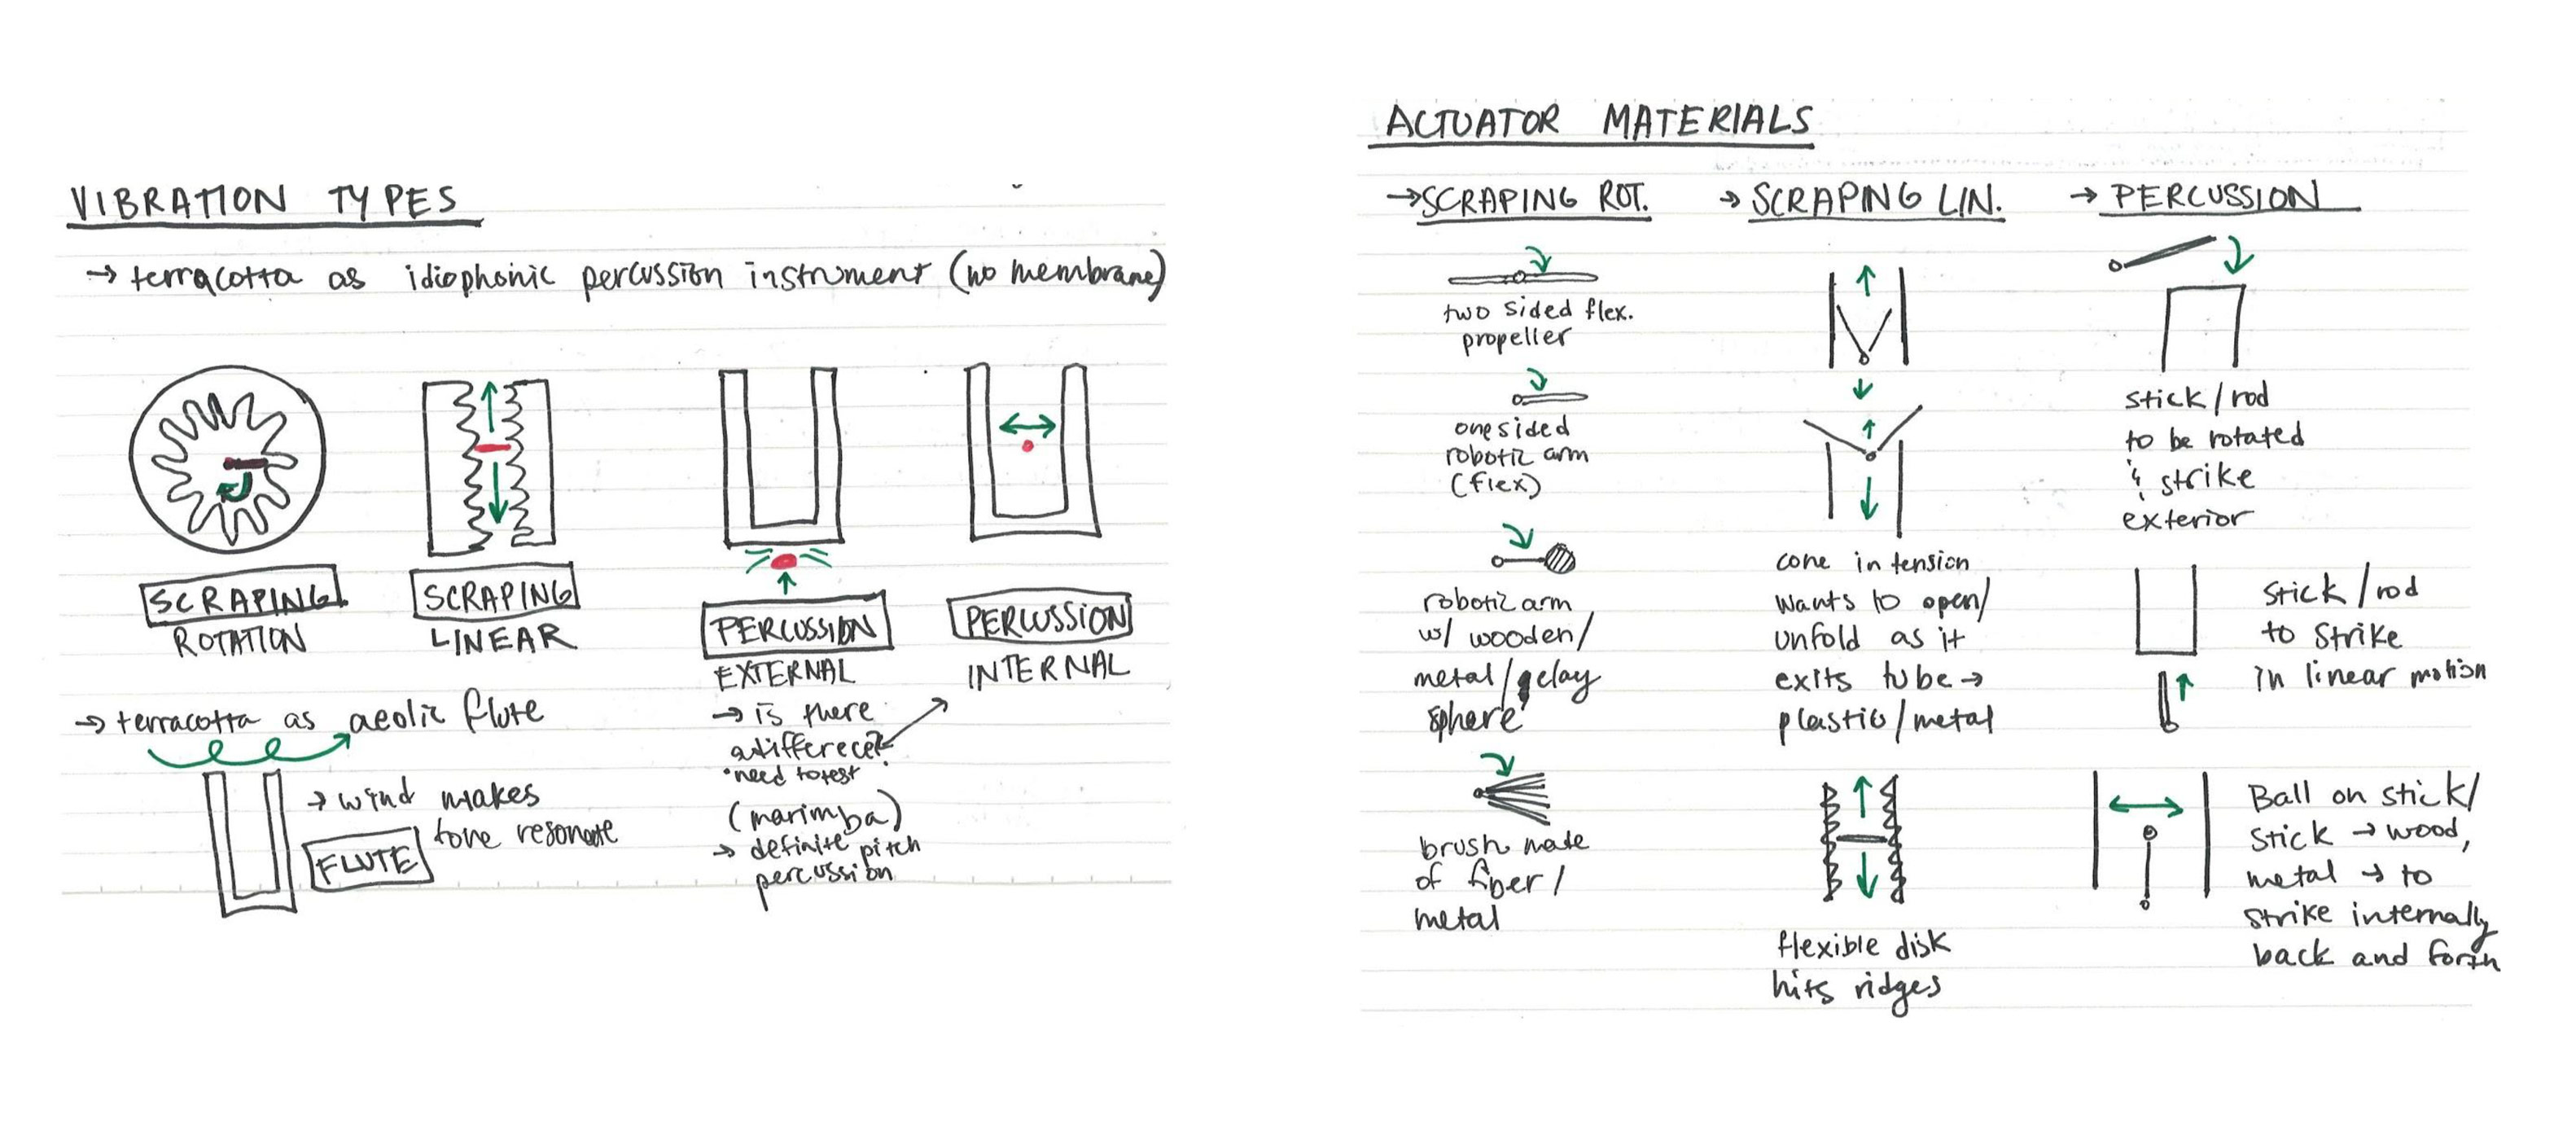 VIBRATION TYPES
→ terracotta as idiophonic percussion instrument (no membrane)
SCRAPING
ROTATION
SCRAPING
LINEAR
PERCUSSION
EXTERNAL
→ is there
a differece?
• need to test
(marimba)
→ definite pitch
percussion
PERCUSSION
INTERNAL
→ terracotta as aeolic flute
→ wind makes
tone resonate
FLUTE
ACTUATOR MATERIALS
→ SCRAPING ROT.
two sided flex.
propeller
one sided
robotic arm
(flex)
robotic arm
w/ wooden/
metal/clay
sphere
brush made
of fiber/
metal
→ SCRAPING LIN.
cone in tension
wants to open/
unfold as it
exits tube →
plastic/metal
flexible disk
hits ridges
→ PERCUSSION
stick/rod
to be rotated
& strike
exterior
stick/rod
to strike
in linear motion
Ball on stick/
stick → wood,
metal → to
strike internally
back and forth